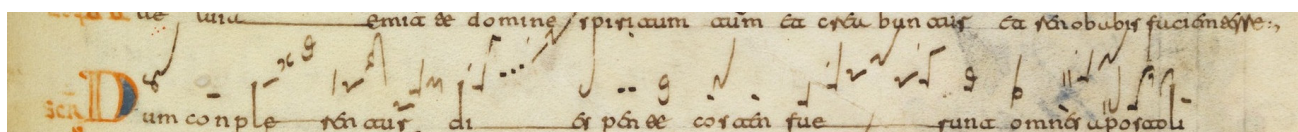 luia emitte domine spiritum tuum et creabuntur et renobabis faciem terre
Dum conple rentur di es pentecosten fue runt omnes apostoli